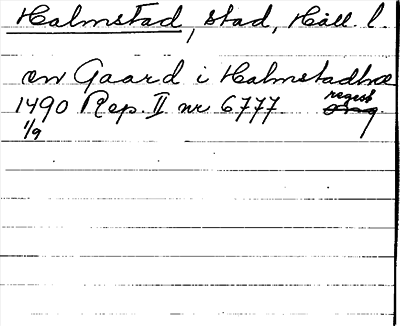 Halmstad, stad, Hall l.
en Gaard i Halmstadhæ
regest
1490 Rep. II nr 6777. orig
1/9